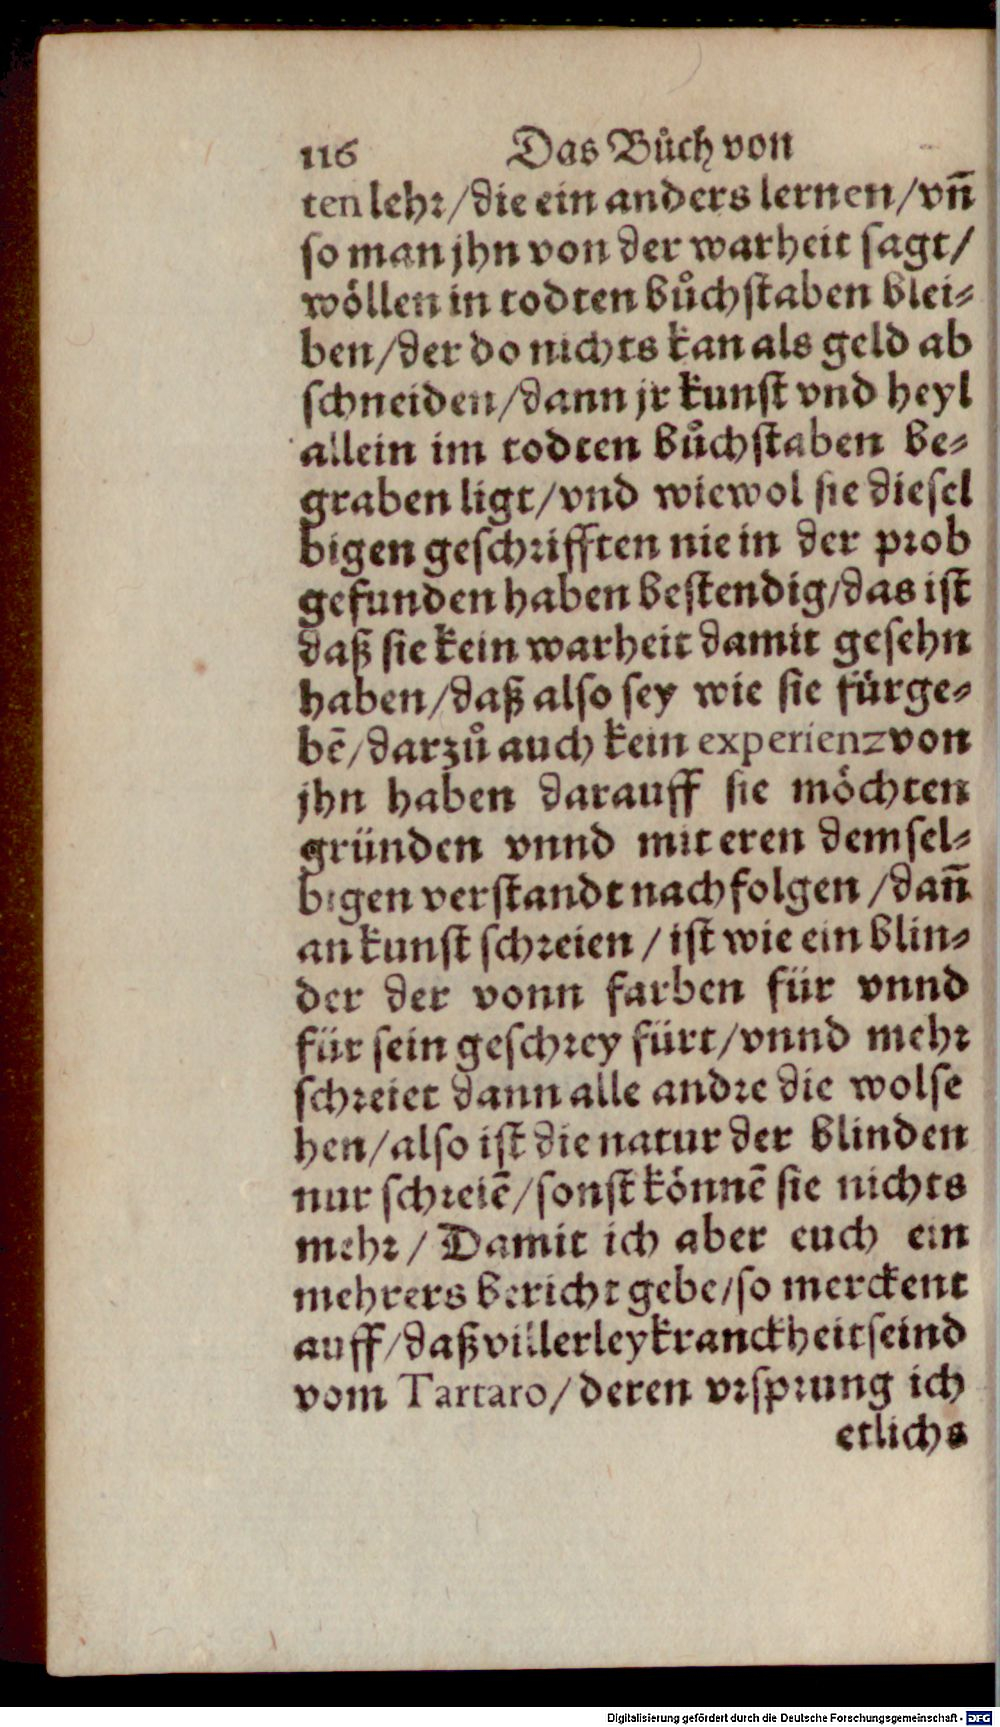 116 Das Bůch von
ten lehr/die ein anders lernen/vñ
so man jhn von der warheit sagt/
wöllen in todten bůchstaben blei⸗
ben/der do nichts kan als geld ab
schneiden/dann jr kunst vnd heyl
allein im todten bůchstaben be⸗
graben ligt/vnd wiewol sie diesel
bigen geschrifften nie in der prob
gefunden haben bestendig/das ist
daß sie kein warheit damit gesehn
haben/daß also sey wie sie fürge⸗
bē/darzů auch kein experienz von
jhn haben darauff sie möchten
gründen vnnd mit eren demsel⸗
bigen verstandt nachfolgen/dañ
an kunst schreien/ist wie ein blin⸗
der der vonn farben für vnnd
für sein geschrey fürt/vnnd mehr
schreiet dann alle andre die wolse
hen/also ist die natur der blinden
nur schreiē/sonst könnē sie nichts
mehr/Damit ich aber euch ein
mehrers bericht gebe/so merckent
auff/daß villerley kranckheit seind
vom Tartaro/deren vrsprung ich
etlichs
Digitalisierung gefördert durch die Deutsche Forschungsgemeinschaft - DFG